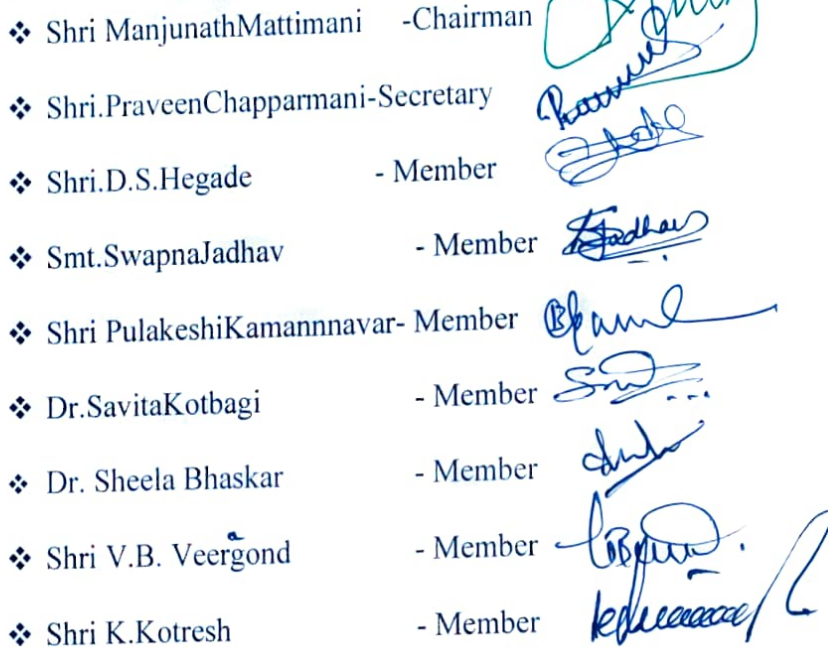 ❖ Shri ManjunathMattimani -Chairman
❖ Shri.PraveenChapparmani-Secretary
❖ Shri.D.S.Hegade - Member
❖ Smt.SwapnaJadhav - Member Jadhav
❖ Shri PulakeshiKamannnavar- Member
❖ Dr.SavitaKotbagi - Member
❖ Dr. Sheela Bhaskar - Member
a
❖ Shri V.B. Veergond - Member
❖ Shri K.Kotresh - Member